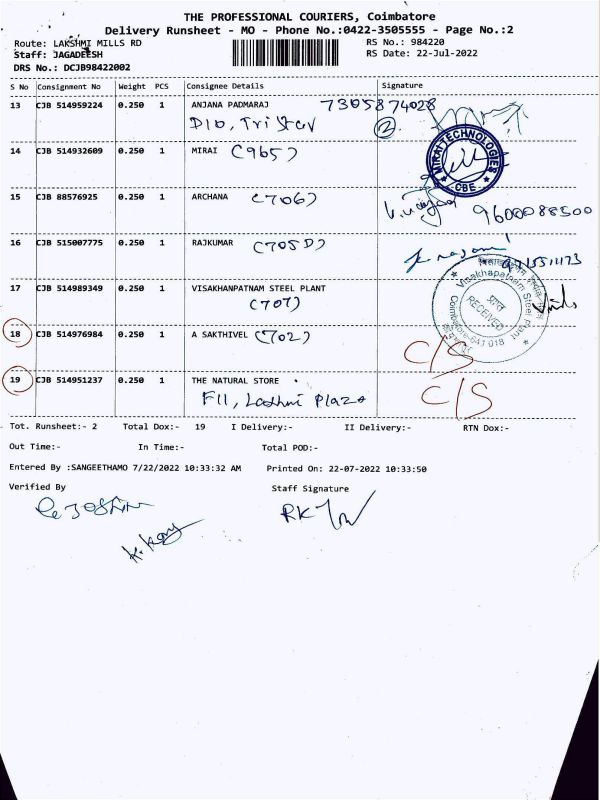 THE PROFESSIONAL COURIERS, Coimbatore
Delivery Runsheet - MO - Phone No.:0422-3505555 - Page No.:2
Route: LAKSHMI MILLS RD RS No.: 984220
Staff: JAGADEESH RS Date: 22-Jul-2022
DRS No.: DCJB98422002
S No Consignment No Weight PCS Consignee Details Signature
13 CJB 514959224 0.250 1 ANJANA PADMARAJ 7305874028
D10, Tri Star 2.
14 CJB 514932609 0.250 1 MIRAI (965)
MIRAI TECHNOLOGIES
CBE
15 CJB 88576925 0.250 1 ARCHANA (706)
9600088500
16 CJB 515007775 0.250 1 RAJKUMAR (705D)
17 CJB 514989349 0.250 1 VISAKHANPATNAM STEEL PLANT
(707)
Visakhapatnam Steel Plant
प्राप्त
RECEIVED
Coimbatore-641 018
18 CJB 514976984 0.250 1 A SAKTHIVEL (702) C/S
19 CJB 514951237 0.250 1 THE NATURAL STORE C/S
F11, Lakshmi Plaza
Tot. Runsheet:- 2 Total Dox:- 19 I Delivery:- II Delivery:- RTN Dox:-
Out Time:- In Time:- Total POD:-
Entered By :SANGEETHAMO 7/22/2022 10:33:32 AM Printed On: 22-07-2022 10:33:50
Verified By Staff Signature